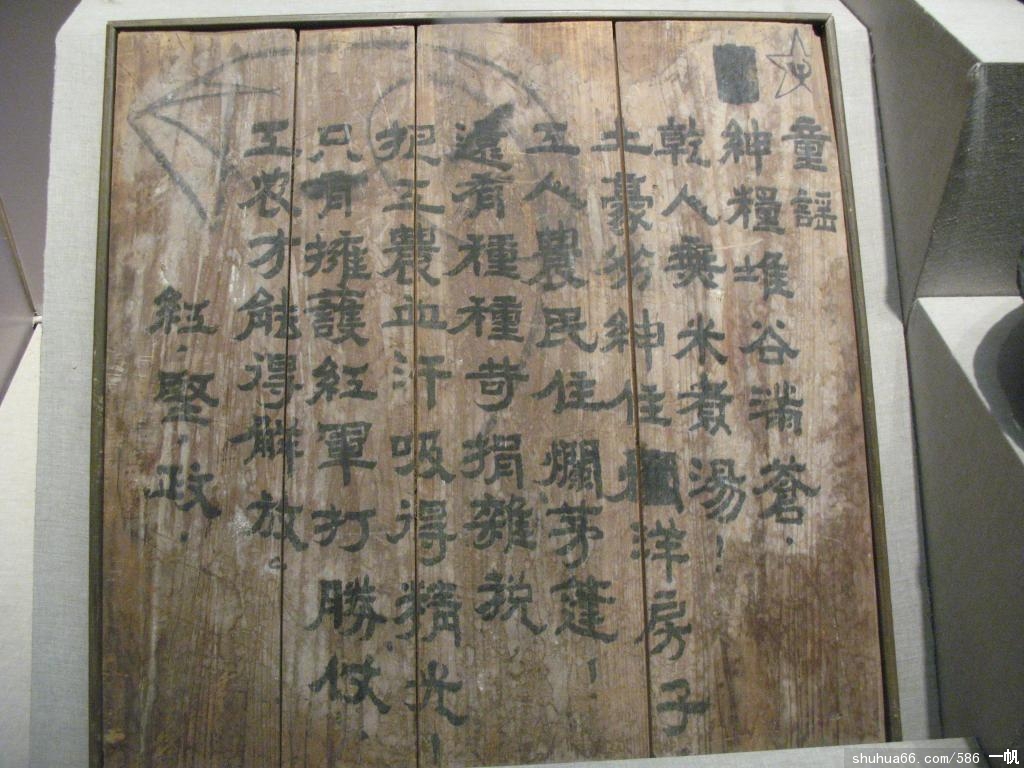 童謠
紳糧堆谷满蒼.
乾人米煮湯!
土豪劣紳住洋房子.
工人農民住爛茅篷!
還有種種苛捐雜税
把工農血汗吸得精光!
只有擁護紅軍打勝仗.
工农才能得解放。
紅.堅.政.
shuhua66.com/586 一帆